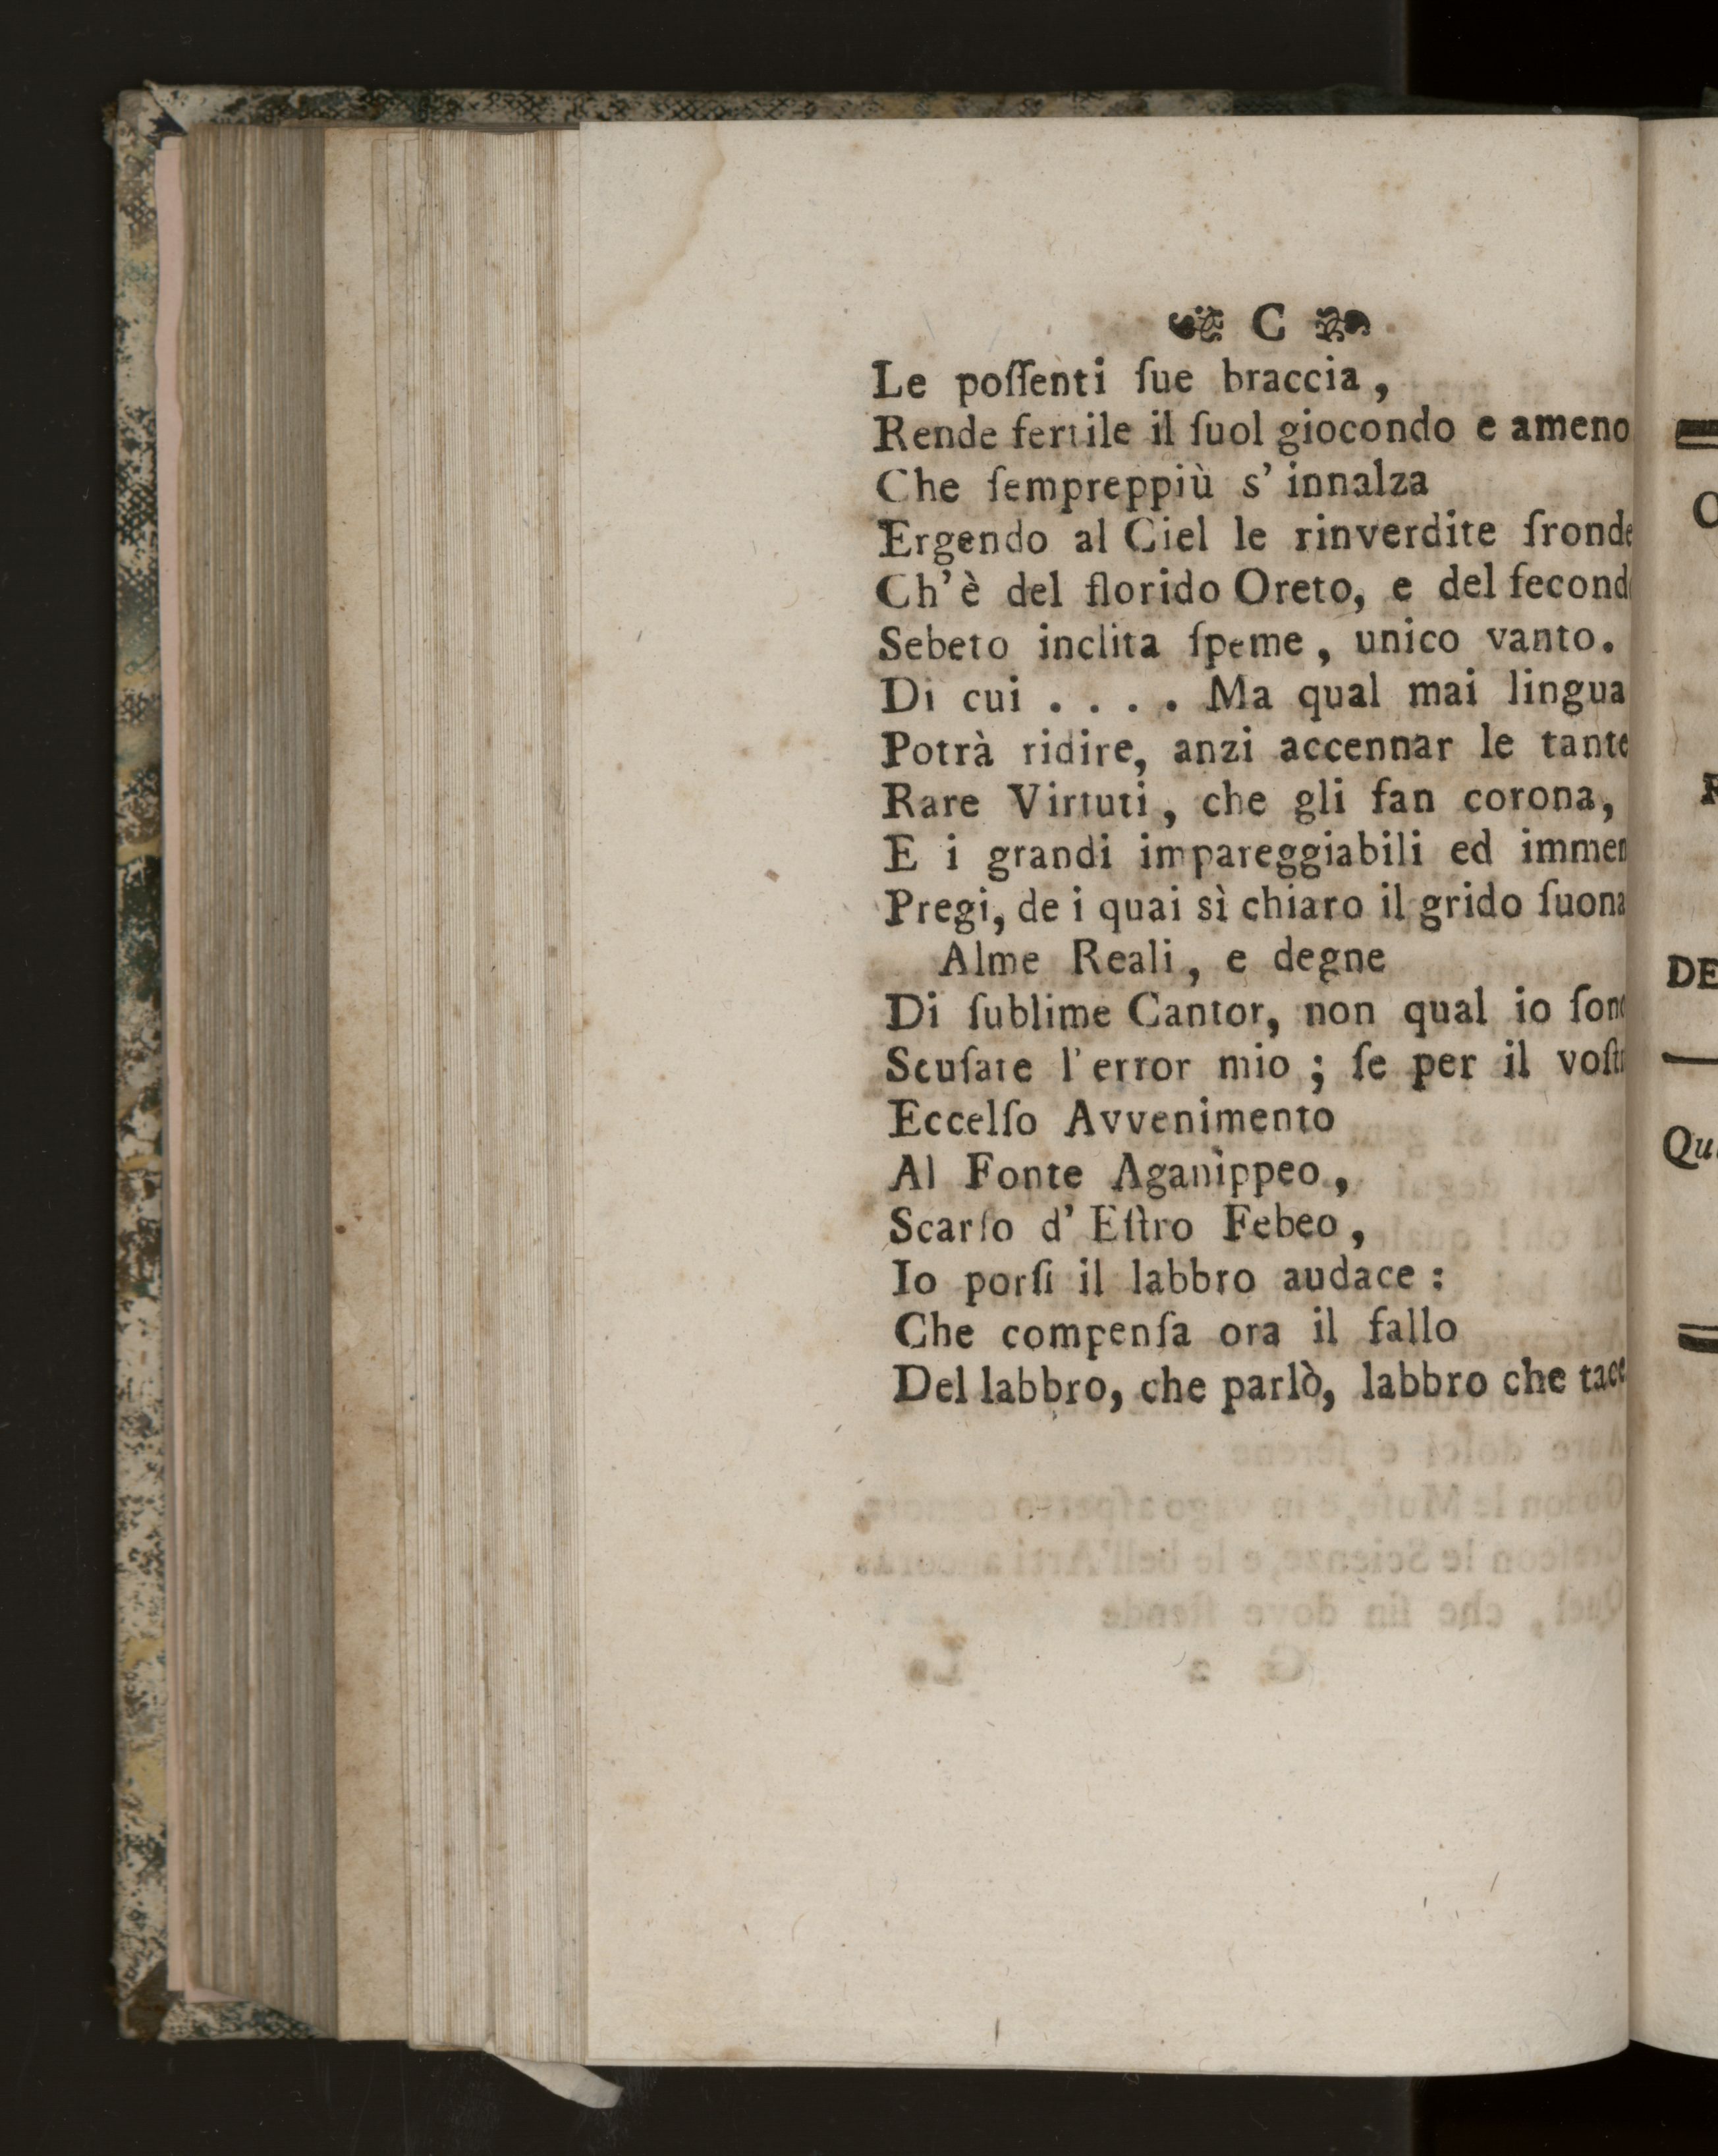 C
Le poſſenti ſue braccia,
Rende fertile il ſuol giocondo e ameno
Che ſempreppiù s' innalza
Ergendo al Ciel le rinverdite fronde
Ch'è del florido Oreto, e del fecond
Sebeto inclita ſpeme, unico vanto.
Di cui . . . . Ma qual mai lingua
Potrà ridire, anzi accennar le tante
Rare Virtuti, che gli fan corona,
E i grandi impareggiabili ed immen
Pregi, de i quai sì chiaro il grido ſuona
Alme Reali, e degne
Di ſublime Cantor, non qual io ſono
Scuſate l'error mio; ſe per il voſtr
Eccelſo Avvenimento
Al Fonte Aganippeo,
Scarſo d' Eſtro Febeo,
Io porſi il labbro audace:
Che compenſa ora il fallo
Del labbro, che parlò, labbro che tace
DE
Qu